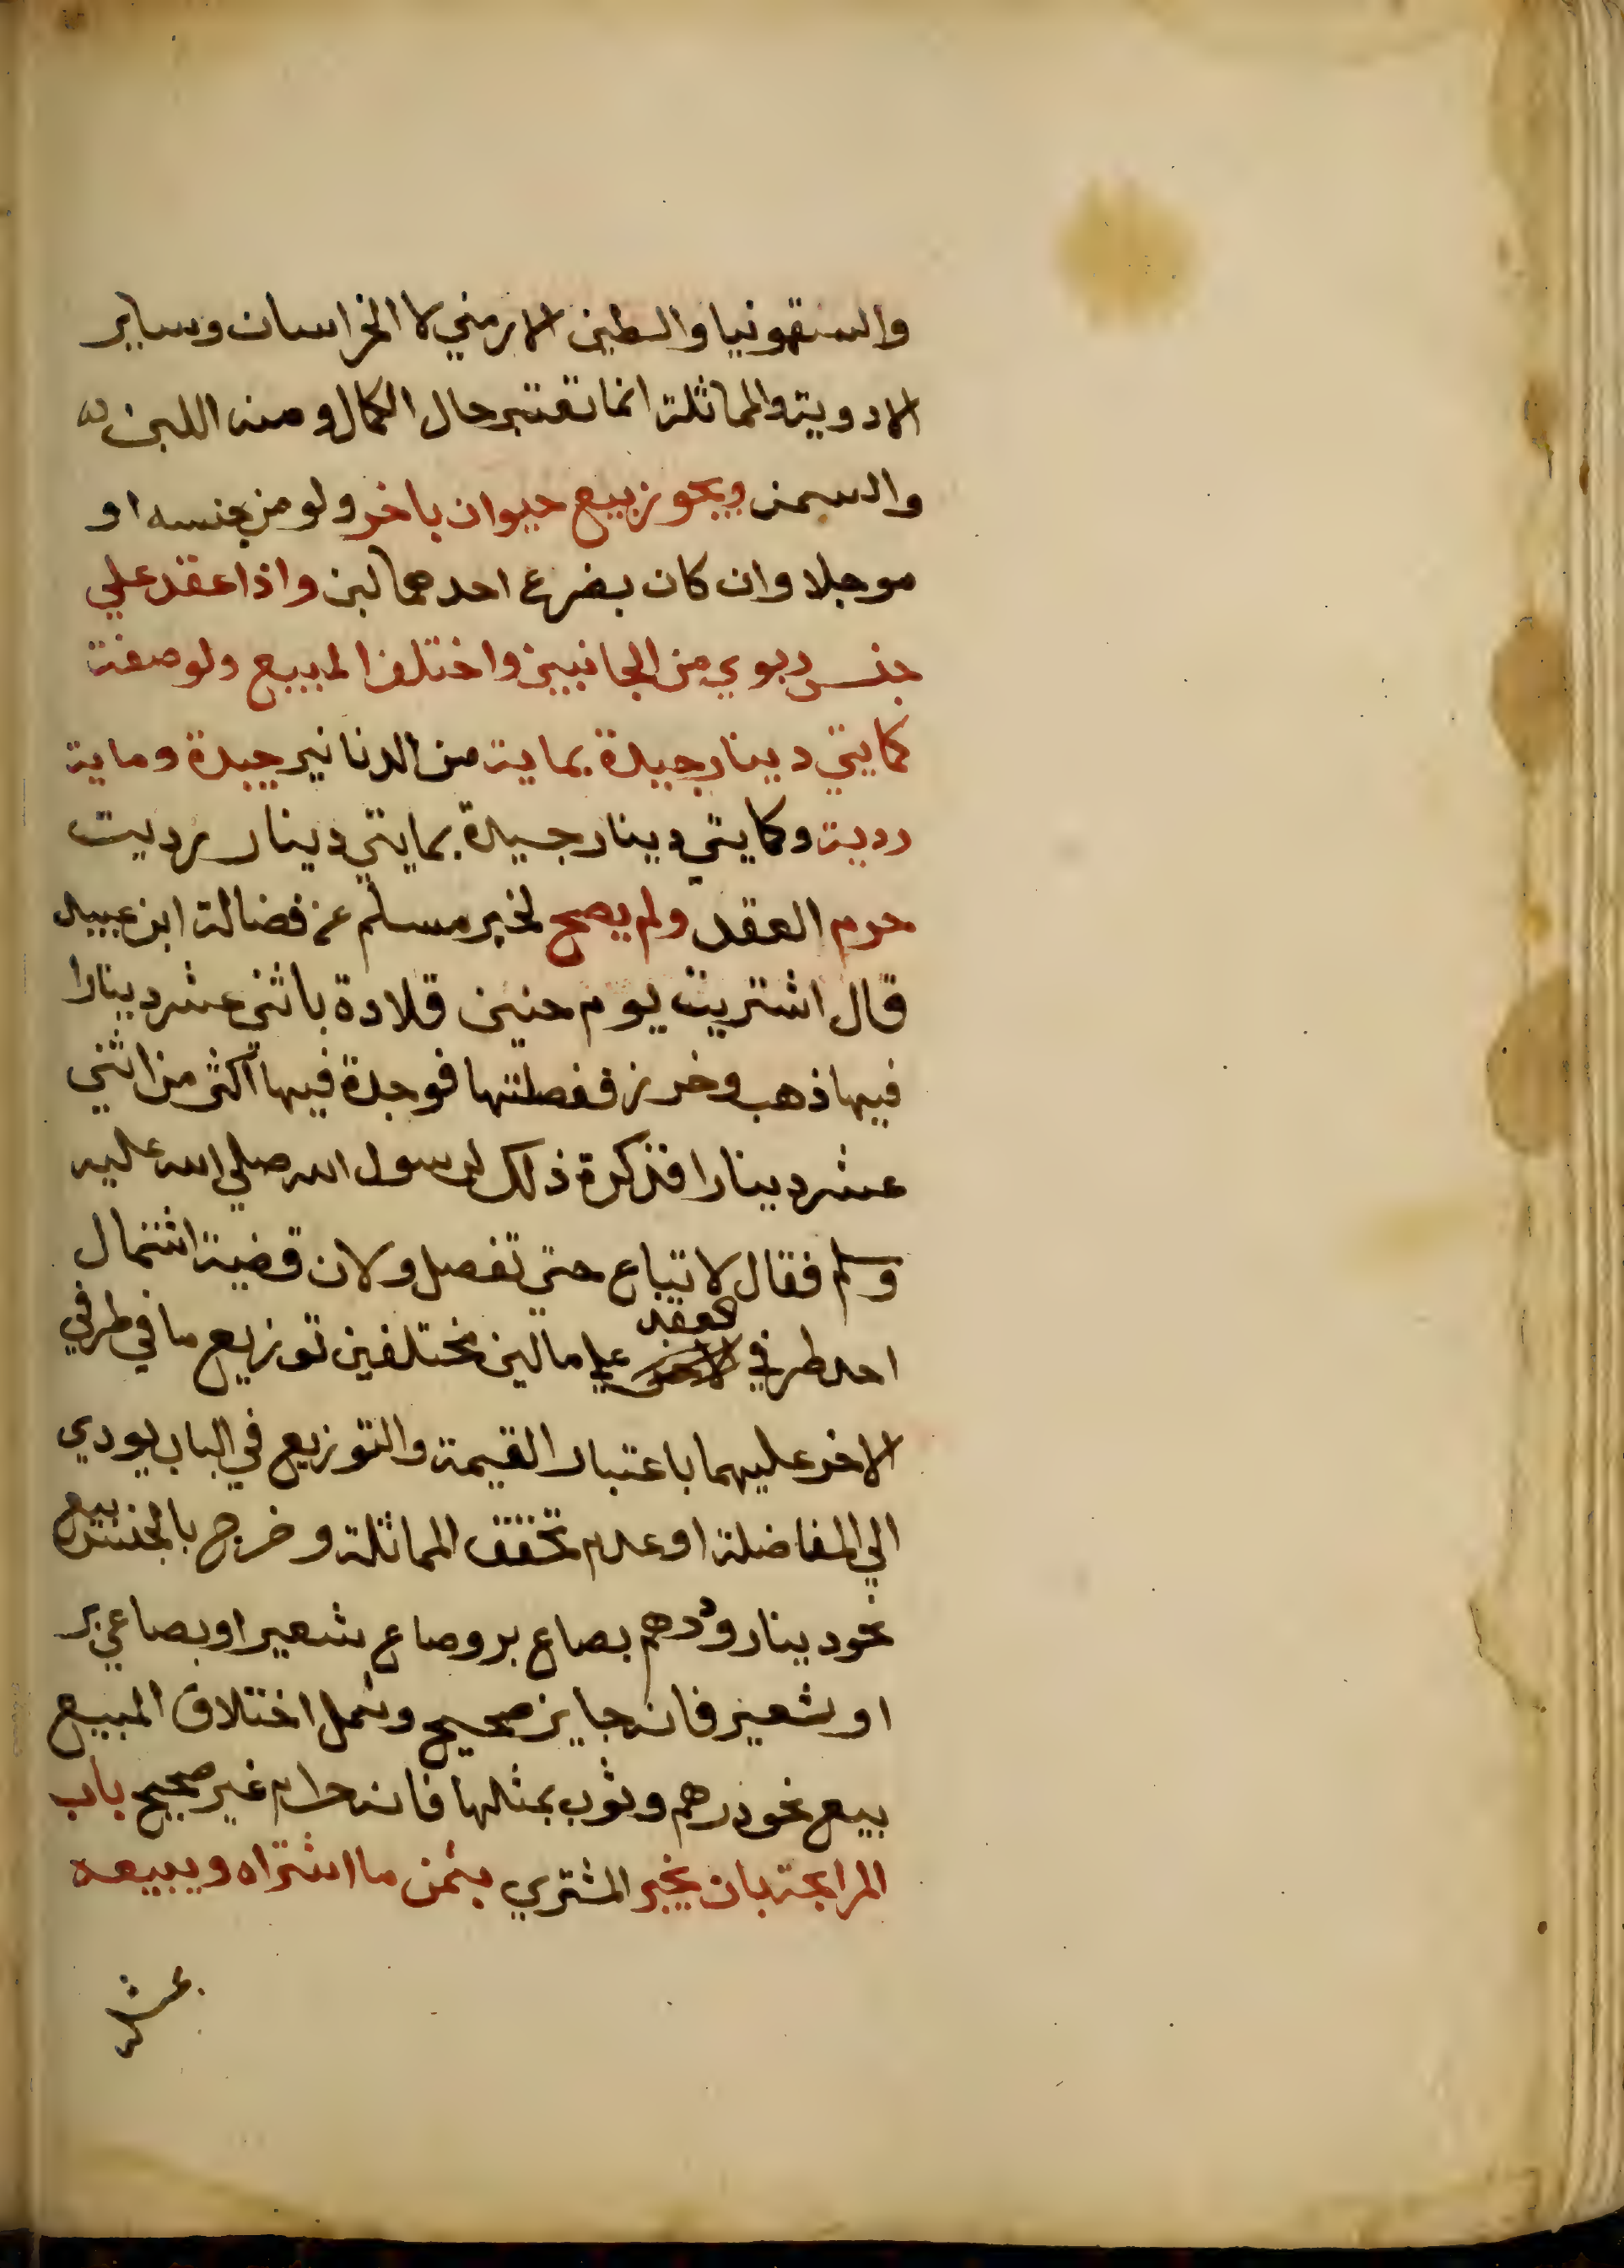 والسقمونيا والطين الارمني لا الخراسان وساير
الادوية والمماثلة انما تعتبر حال الكمال ومنه اللبن
والسمن ويجوز بيع حيوان باخر ولو من جنسه او
موجلا وان كان بضرع احدهما لبن واذا عقد علي
جنس ربوي من الجانبين واختلف المبيع ولو صفة
كمايتي دينار جيدة بماية من الدنانير جيدة وماية
ردية وكمايتي دينار جيدة بمايتي دينار رديت
حرم العقد ولم يصح لخبر مسلم عن فضالة ابن عبيد
قال اشتريت يوم حنين قلادة باثني عشر دينارا
فيها ذهب وخرز ففصلتها فوجدة فيها اكثر من اثني
عشر دينارا فذكرة ذلك لرسول الله صلي الله عليه
وسلم فقال لا تباع حتي تفصل ولان قضية اشتمال
احد طرفي العقد علي مالين مختلفين توزيع ما في طرفي
الاخر عليهما باعتبار القيمة والتوزيع في الباب يودي
الي المفاضلة او عدم تحقق المماثلة وخرج بالجنس بيع
نحو دينار ودرهم بصاع بر وصاع شعير او بصاعي بر
او شعير فانه جايز صحيح وشمل اختلاف المبيع
بيع نحو درهم وثوب بمثلها فانه حرام غير صحيح باب
المرابحة بان يخبر المشتري بثمن ما اشتراه ويبيعه